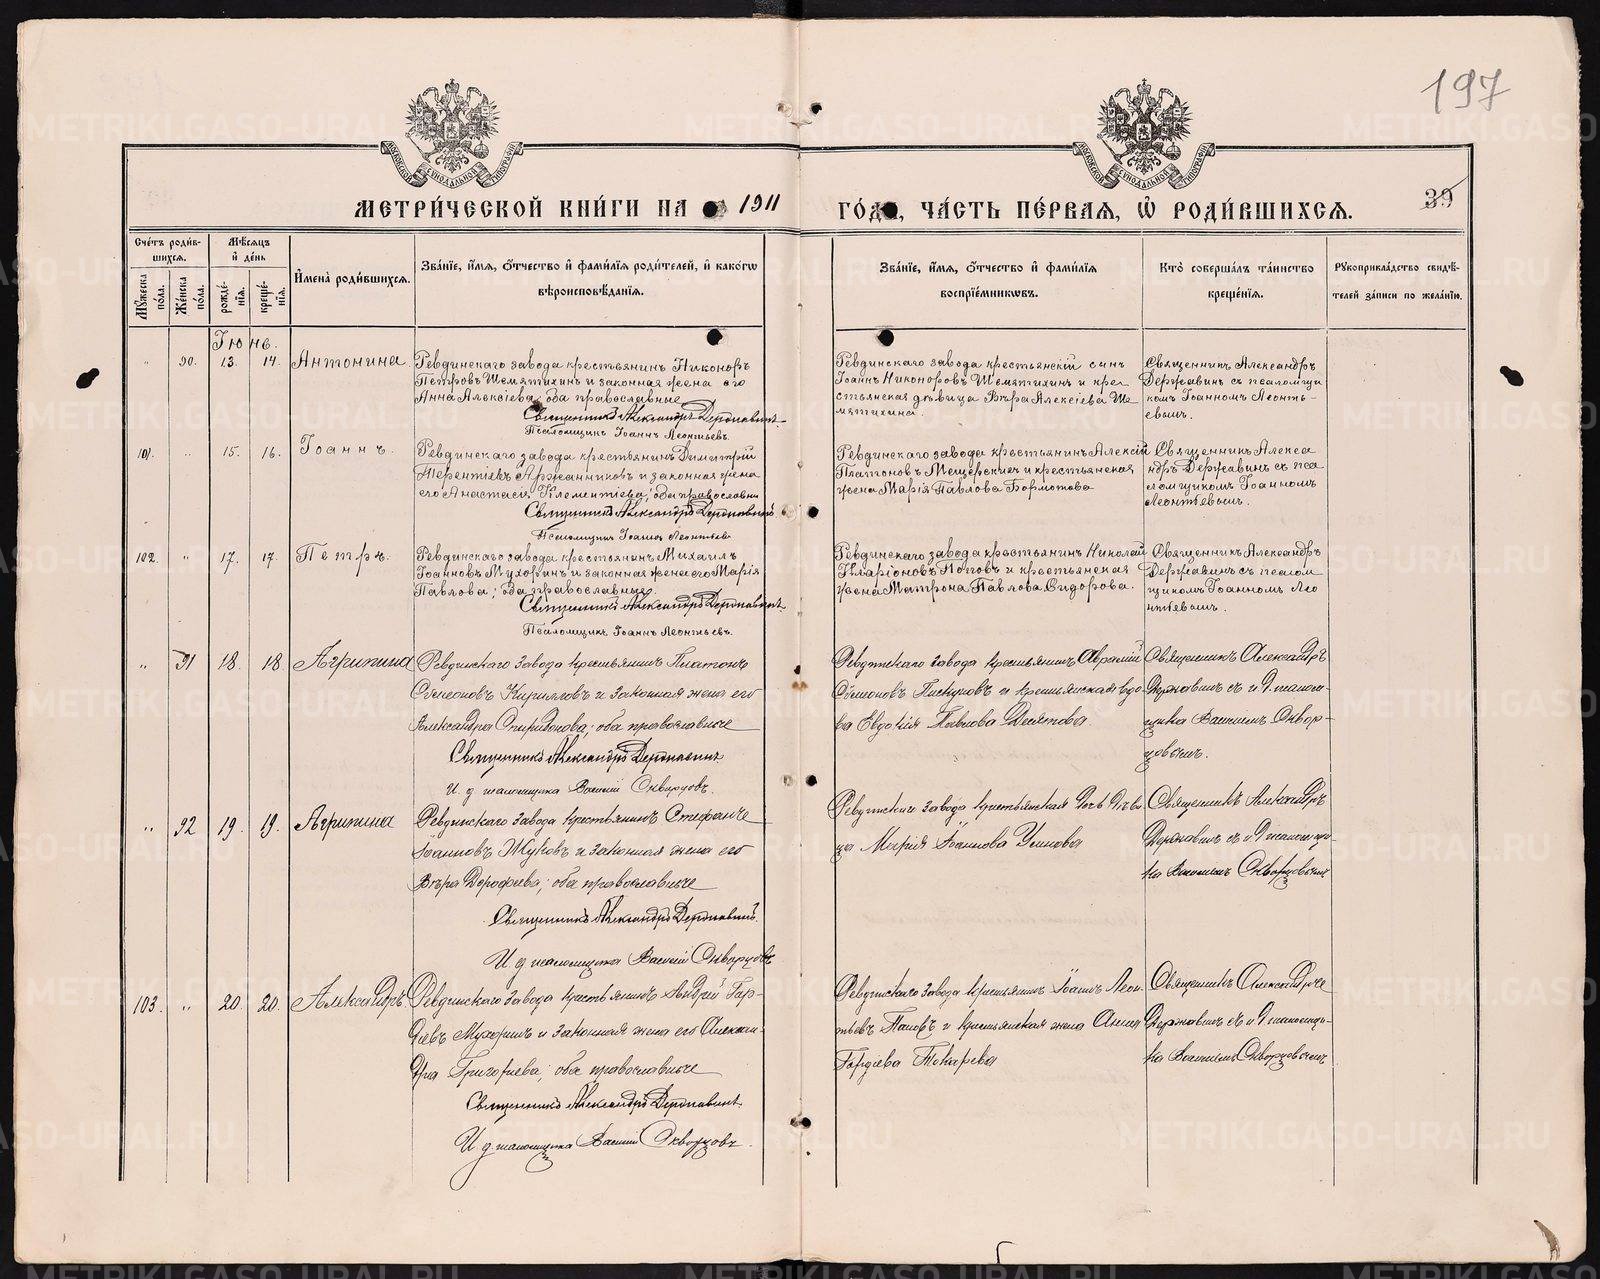 197
МОСКОВСКОЙ СѴНОДАЛЬНОЙ ТИПОГРАФІИ
МОСКОВСКОЙ СѴНОДАЛЬНОЙ ТИПОГРАФІИ
39
МЕТРИ́ЧЕСКОЙ КНИ́ГИ НА 1911 ГО́ДА, ЧА́СТЬ ПЕ́РВАЯ, Ѡ҆ РОДИ́ВШИХСЯ.
Сче́тъ роди́в-
шихся.
Мꙋ́жеска по́ла.
Же́нска по́ла.
Мѣ́сяцъ и҆ де́нь
рожде́-нїя.
креще́-нїя.
И҆мена̀ роди́вшихся.
Зва́нїе, и҆́мя, ѻ҆́тчество и҆ фами́лїя роди́телей, и҆ како́гѡ
вѣроисповѣ́данїя.
Зва́нїе, и҆́мя, ѻ҆́тчество и҆ фами́лїя
воспрїе́мникѡвъ.
Кто̀ соверша́лъ та́инство
креще́нїя.
Рꙋкоприкла́дство свидѣ́-
телей за́писи по жела́нїю.
Іюнь.
" 90. 13. 14. Антонина
Ревдинскаго завода крестьянинъ Никоноръ
Петровъ Шемятихинъ и законная жена его
Анна Алексіева, оба православные
Священникъ Александръ Державинъ
Псаломщикъ Іоаннъ Леонтьевъ.
Ревдинскаго завода крестьянскій сынъ
Іоаннъ Никоноровъ Шемятихинъ и кре-
стьянская дѣвица Вѣра Алексіева Ше-
мятихина.
Священникъ Александръ
Державинъ съ псаломщи
комъ Іоанномъ Леонть-
евымъ.
101. " 15. 16. Іоаннъ.
Ревдинскаго завода крестьянинъ Димитрій
Терентіевъ Аржанниковъ и законная жена
его Анастасія Клементіева; оба православны
Священникъ Александръ Державинъ
Псаломщикъ Іоаннъ Леонтьевъ
Ревдинскаго завода крестьянинъ Алексій
Платоновъ Мещерскихъ и крестьянская
жена Марія Павлова Бормотова
Священникъ Алекса
ндръ Державинъ съ пса
ломщикомъ Іоанномъ
Леонтьевымъ.
102. " 17. 17. Петръ.
Ревдинскаго завода крестьянинъ Михаилъ
Іоанновъ Мухоринъ и законная жена его Марія
Павлова; оба православные.
Священникъ Александръ Державинъ
Псаломщикъ Іоаннъ Леонтьевъ.
Ревдинскаго завода крестьянинъ Николай
Иларіоновъ Поповъ и крестьянская
жена Матрона Павлова Сидорова.
Священникъ Александръ
Державинъ съ псалом
щикомъ Іоанномъ Лео
нтьевымъ.
" 91 18. 18 Агрипина
Ревдинскаго завода крестьянинъ Платонъ
Симеоновъ Кирилловъ и законная жена его
Александра Спиридонова; оба православные
Священникъ Александръ Державинъ
И. д. псаломщика Василій Скворцовъ.
Ревдинскаго завода крестьянинъ Аврамій
Симеоновъ Пискуновъ и крестьянская вдо-
ва Евдокія Павлова Десятова.
Священникъ Александръ
Державинъ съ и. д. псалом-
щика Василіемъ Сквор-
цовымъ.
" 92 19. 19. Агрипина
Ревдинскаго завода крестьянинъ Стефанъ
Іоанновъ Жуковъ и законная жена его
Вѣра Дорофеева; оба православные
Священникъ Александръ Державинъ.
И д псаломщика Василій Скворцовъ
Ревдинскаго завода крестьянская дочь дѣви
ца Марія Іоаннова Умнова
Священникъ Александръ
Державинъ съ и. д псаломщи
ка Василіемъ Скворцовымъ
103. " 20. 20. Александръ
Ревдинскаго завода крестьянинъ Андрей Гор-
діевъ Мухоринъ и законная жена его Алексан-
дра Григорьева; оба православные
Священникъ Александръ Державинъ
И д. псаломщика Василій Скворцовъ.
Ревдинскаго завода крестьянинъ Іоаннъ Леон-
тьевъ Поповъ и крестьянская жена Анна
Гордіева Токарева
Священникъ Александръ
Державинъ съ и д псаломщи-
ка Василіемъ Скворцовымъ